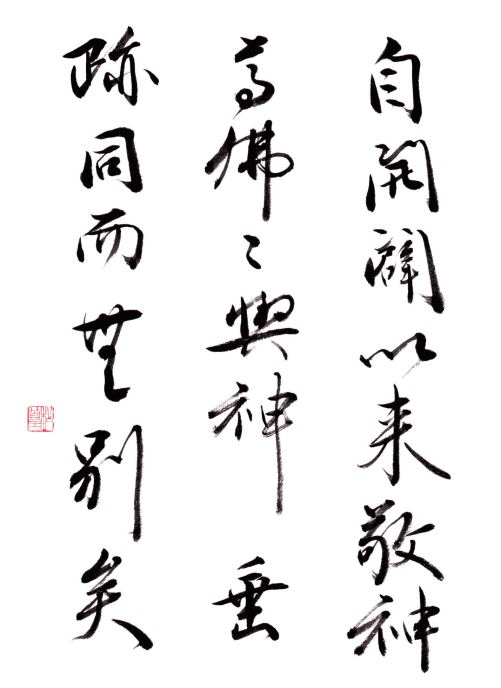 自開闢以来敬神
尊佛〻與神垂
跡同而無別矣